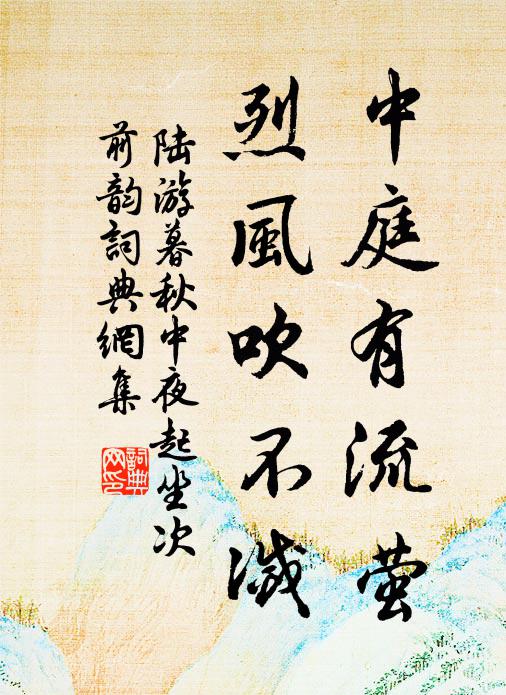 中庭有流萤
烈風吹不滅
陆游暮秋中夜起坐次
前韵詞典網集
詞典
网印